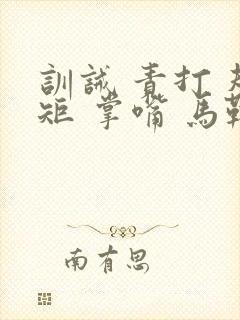 訓誡 責打 規
矩 掌嘴 馬鞭
南有思